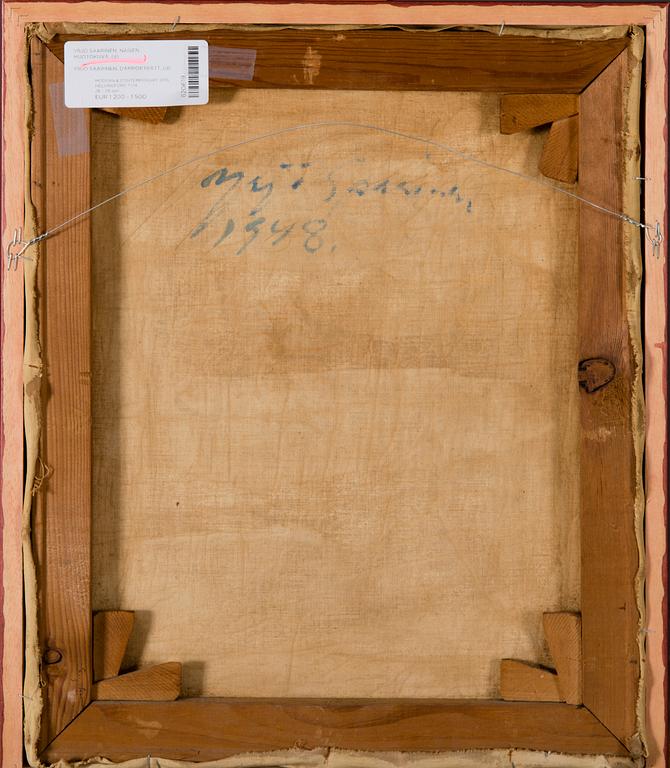 YRJÖ SAARINEN, NAISEN
MUOTOKUVA. (d)
YRJÖ SAARINEN, DAMPORTRÄTT. (d)
MODERN & CONTEMPORARY
HELSINGFORS
EUR 1 200 - 1 500
Yrjö Saarinen
1948.